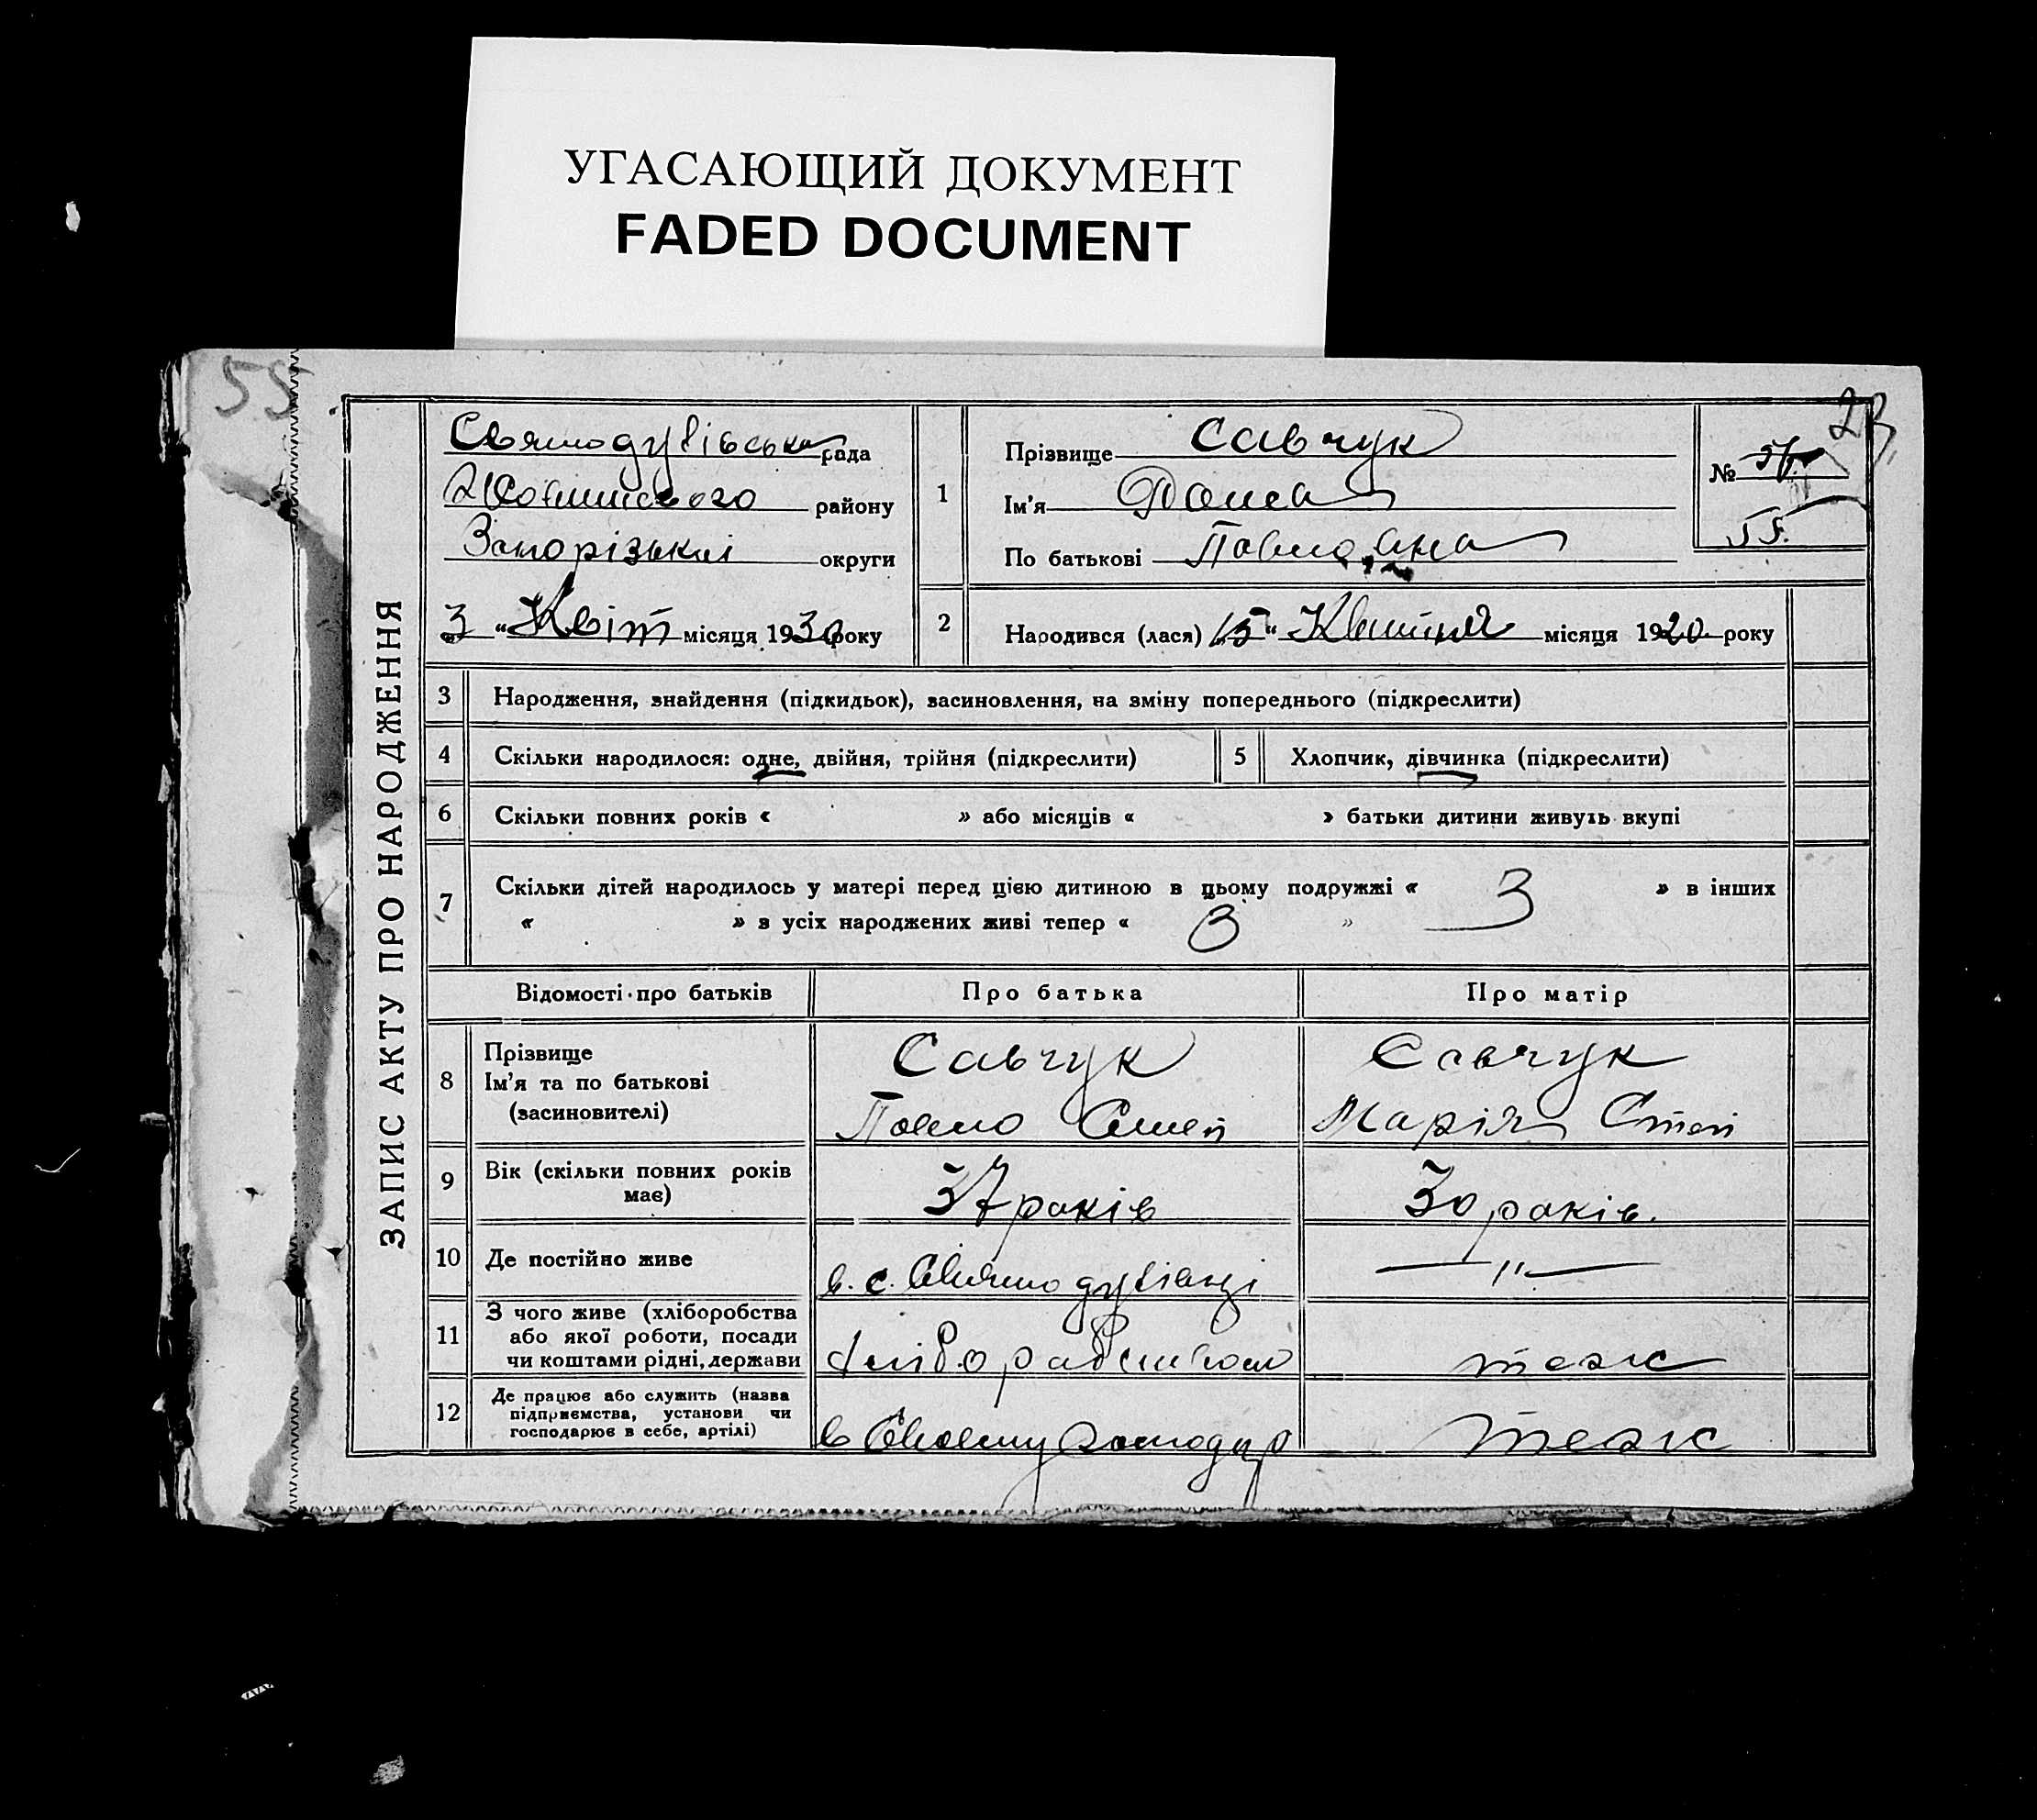 УГАСАЮЩИЙ ДОКУМЕНТ
FADED DOCUMENT
55
23
ЗАПИС АКТУ ПРО НАРОДЖЕННЯ
Святодухівська рада
району
Запорізької округи
3 " Квіт місяця 1930 року
1
Прізвище Савчук
Ім'я
По батькові
№
55.
2
Народився (лася) 15 " Квітня місяця 1920 року
3 Народження, знайдення (підкидьок), засиновлення, на зміну попереднього (підкреслити)
4 Скільки народилося: одне, двійня, трійня (підкреслити)
5 Хлопчик, дівчинка (підкреслити)
6 Скільки повних років « » або місяців « » батьки дитини живуть вкупі
7 Скільки дітей народилось у матері перед цією дитиною в цьому подружжі « 3 » в інших
« » з усіх народжених живі тепер « 3 »
Відомості про батьків Про батька Про матір
8 Прізвище
Ім'я та по батькові
(засиновителі)
Савчук
Павло Семен
Савчук
Марія Степ
9 Вік (скільки повних років
має)
37 років
30 років.
10 Де постійно живе
в. с. Святодухівці
— " —
11 З чого живе (хліборобства
або якої роботи, посади
чи коштами рідні, держави
теж
12 Де працює або служить (назва
підприємства, установи чи
господарює в себе, артілі)
в Своєму господар
теж